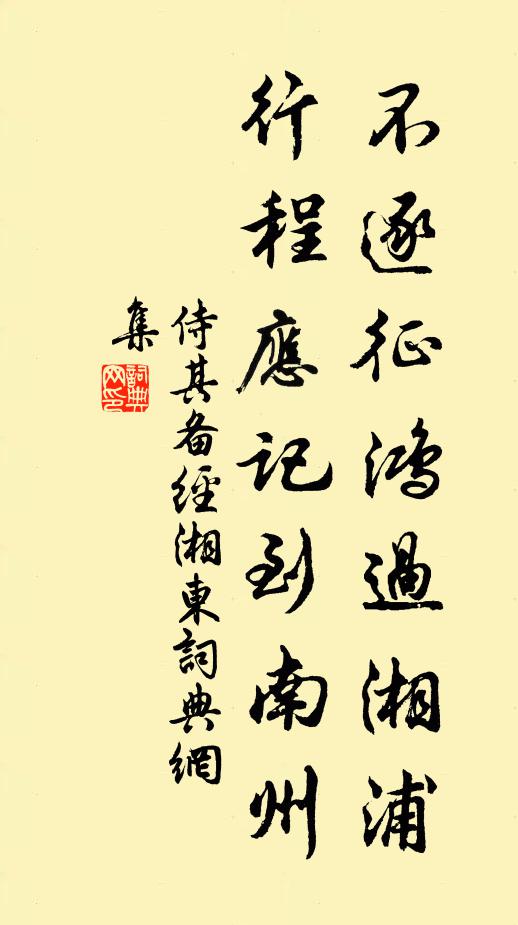 不逐征鴻過湘浦
行程應記到南州
侍其备經湘東詞典網
集
詞典
网印